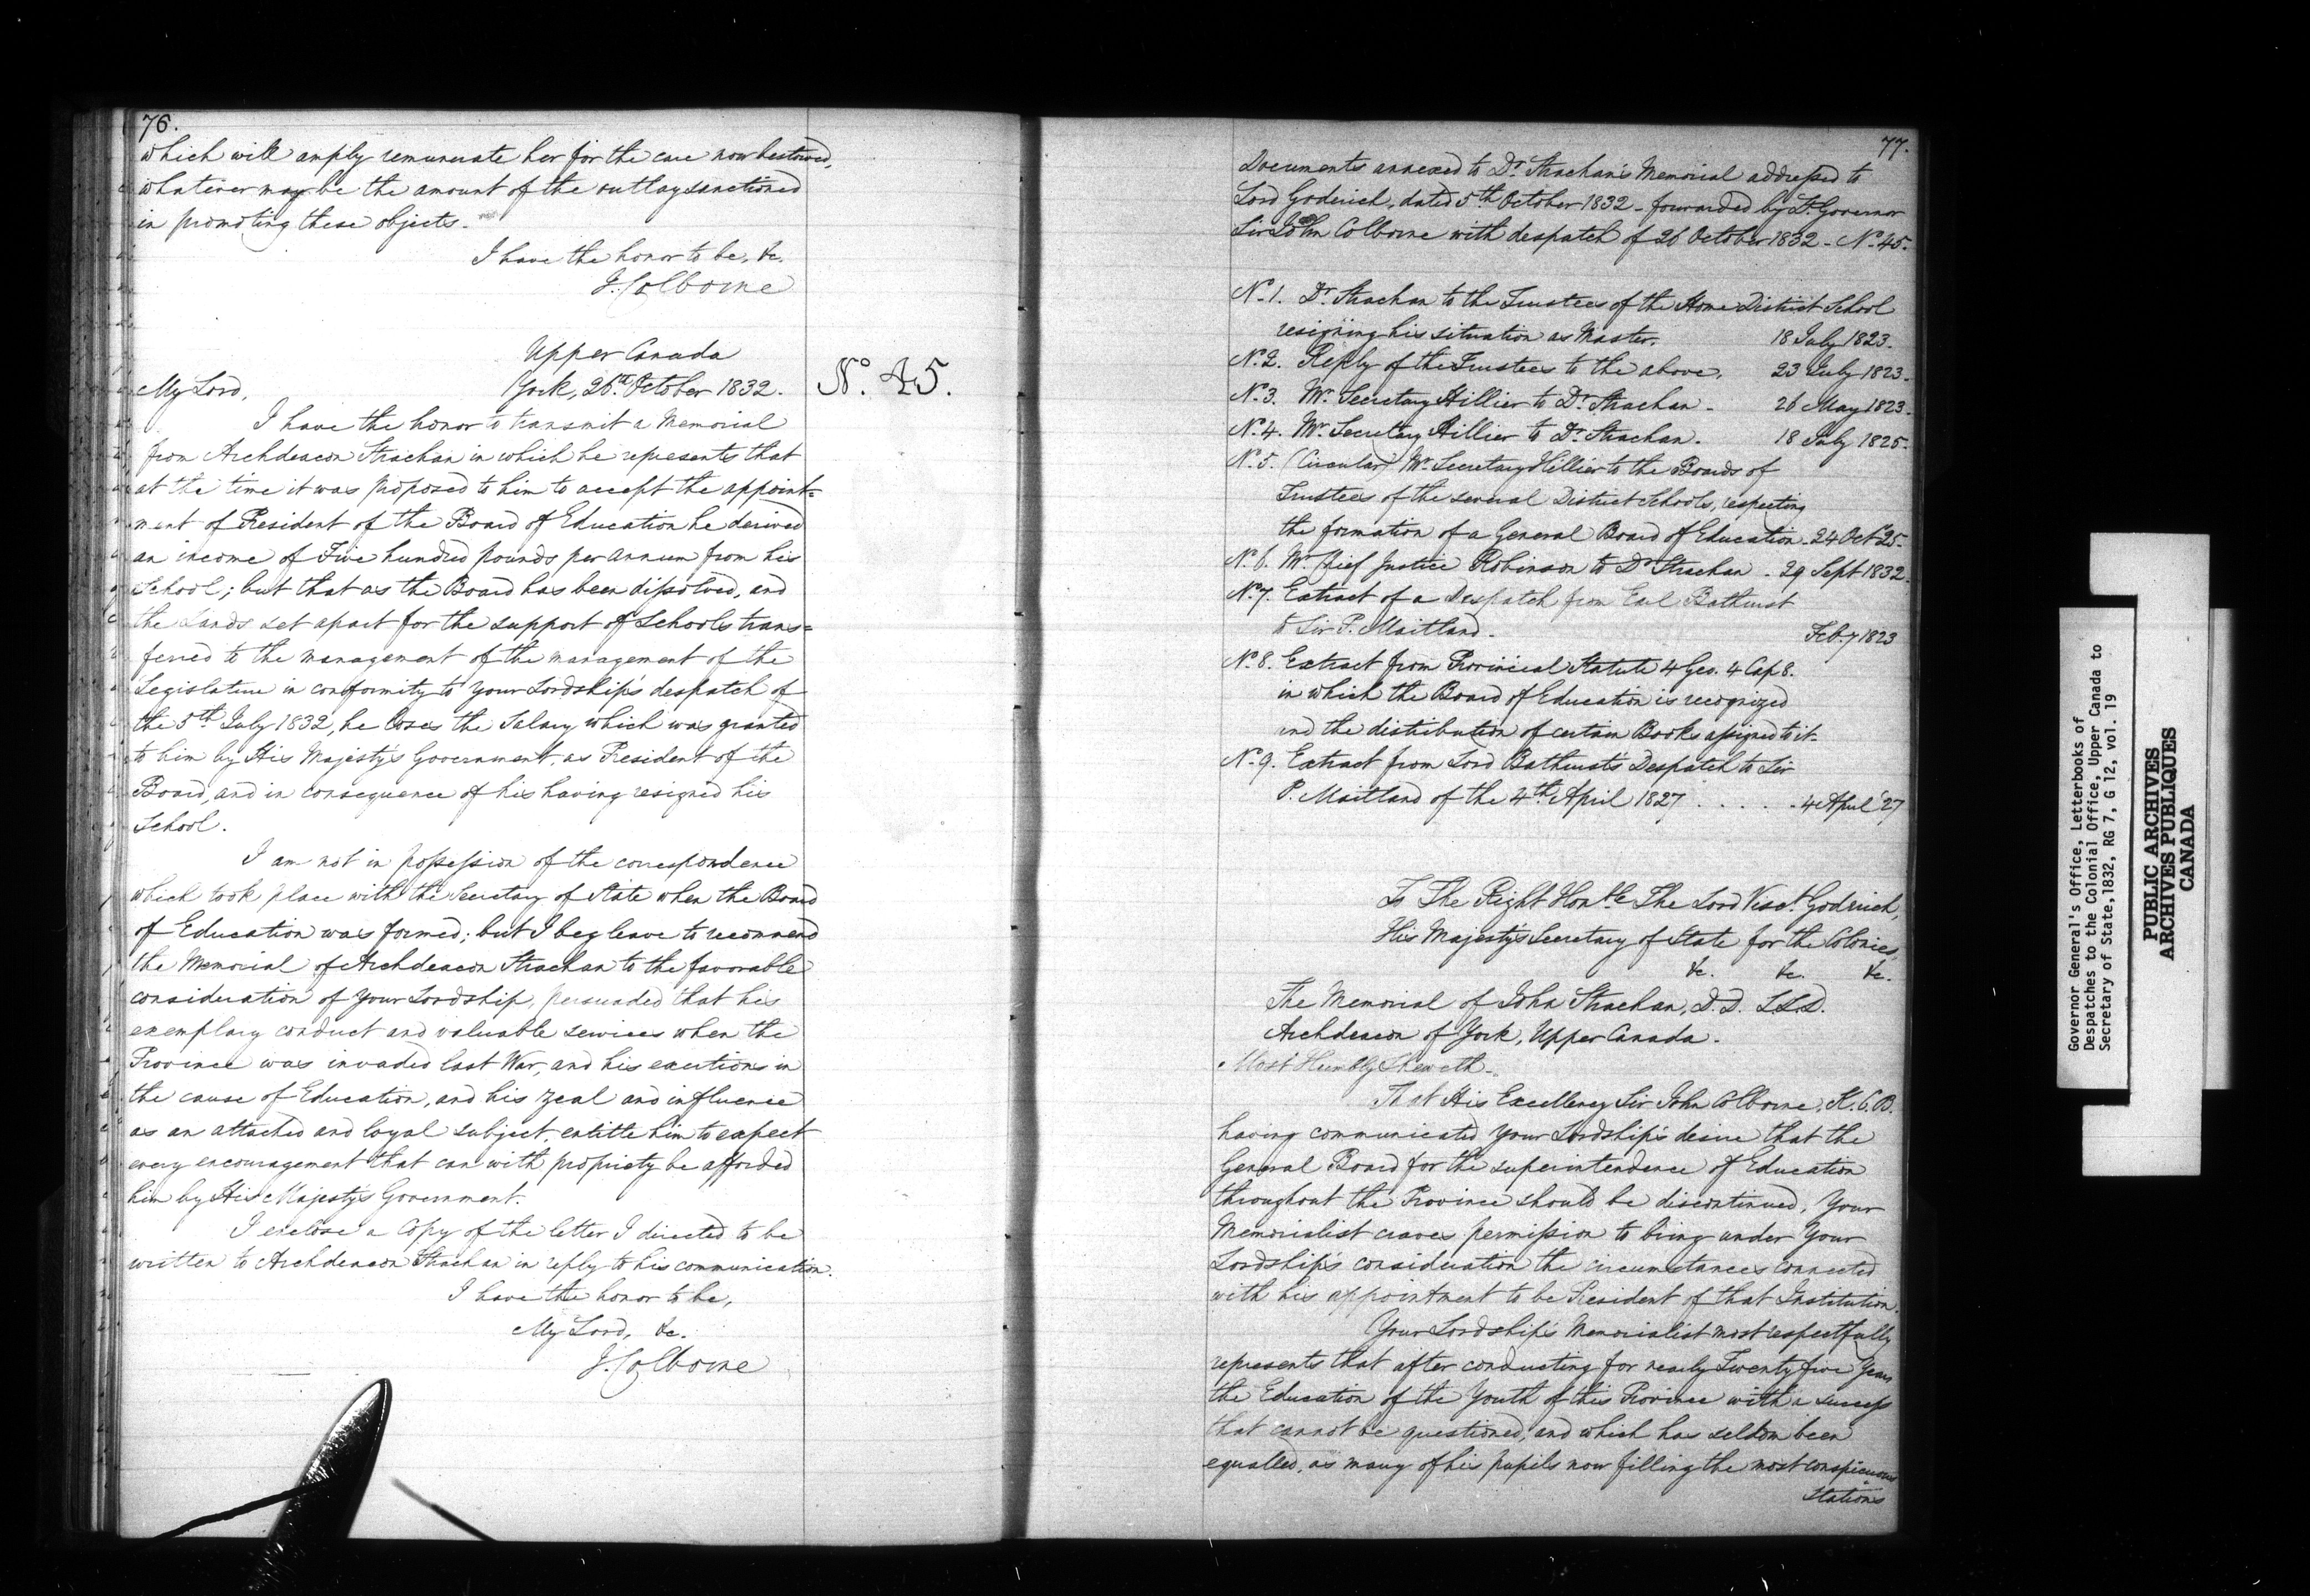 76.
which will amply remunerate her for the care now bestowed,
whatever may be the amount of the outlay sanctioned
in promoting these objects.
I have the honor to be, &c.
J. Colborne
Upper Canada
My Lord, York, 26th October 1832. No. 45.
I have the honor to transmit a Memorial
from Archdeacon Strachan in which he represents that
at the time it was proposed to him to accept the appoint=
ment of President of the Board of Education he derived
an income of Five hundred pounds per annum from his
School; but that as the Board has been dissolved, and
the Lands set apart for the support of Schools trans=
ferred to the management of the management of the
Legislature in conformity to Your Lordship's despatch of
the 5th July 1832, he loses the Salary which was granted
to him by His Majesty's Government, as President of the
Board, and in consequence of his having resigned his
School.
I am not in possession of the correspondence
which took place with the Secretary of State when the Board
of Education was formed; but I beg leave to recommend
the Memorial of Archdeacon Strachan to the favorable
consideration of Your Lordship, persuaded that his
exemplary conduct and valuable services when the
Province was invaded last War, and his exertions in
the cause of Education, and his zeal and influence
as an attached and loyal subject, entitle him to expect
every encouragement that can with propriety be afforded
him by His Majesty's Government.
I enclose a Copy of the letter I directed to be
written to Archdeacon Strachan in reply to his communication.
I have the honor to be,
My Lord, &c.
J. Colborne
77.
Documents annexed to Dr. Strachan's Memorial addressed to
Lord Goderich, dated 5th October 1832 - forwarded by Lt. Governor
Sir John Colborne with despatch of 26 October 1832 - No. 45.
No. 1. Dr. Strachan to the Trustees of the Home District School
resigning his situation as Master. 18 July 1823.
No. 2. Reply of the Trustees to the above. 23 July 1823.
No. 3. Mr. Secretary Hillier to Dr. Strachan - 26 May 1823.
No. 4. Mr. Secretary Hillier to Dr. Strachan. 18 July 1825.
No. 5. (Circular) Mr. Secretary Hillier to the Boards of
Trustees of the several District Schools, respecting
the formation of a General Board of Education - 24 Oct '25.
No. 6. Mr. Chief Justice Robinson to Dr. Strachan - 29 Sept 1832.
No. 7. Extract of a Despatch from Earl Bathurst
to Sir P. Maitland. Feb. 7 1823
No. 8. Extract from Provincial Statute 4 Geo. 4 Cap 8.
in which the Board of Education is recognized
and the distribution of certain Books assigned to it -
No. 9. Extract from Lord Bathurst's Despatch to Sir
P. Maitland of the 4th April 1827 . . . . . 4 April '27
To The Right Honble The Lord Visct. Goderich,
His Majesty's Secretary of State for the Colonies,
&c. &c. &c.
The Memorial of John Strachan, D.D. LL.D.
Archdeacon of York, Upper Canada.
Most Humbly Sheweth -
That His Excellency Sir John Colborne, K.C.B.
having communicated Your Lordship's desire that the
General Board for the superintendence of Education
throughout the Province should be discontinued, Your
Memorialist craves permission to bring under Your
Lordship's consideration the circumstances connected
with his appointment to be President of that Institution.
Your Lordship's Memorialist most respectfully
represents that after conducting for nearly Twenty five Years
the Education of the Youth of this Province with a success
that cannot be questioned, and which has seldom been
equalled, as many of his pupils now filling the most conspicuous
stations
Governor General's Office, Letterbooks of
Despatches to the Colonial Office, Upper Canada to
Secretary of State, 1832, RG 7, G 12, vol. 19
PUBLIC ARCHIVES
ARCHIVES PUBLIQUES
CANADA